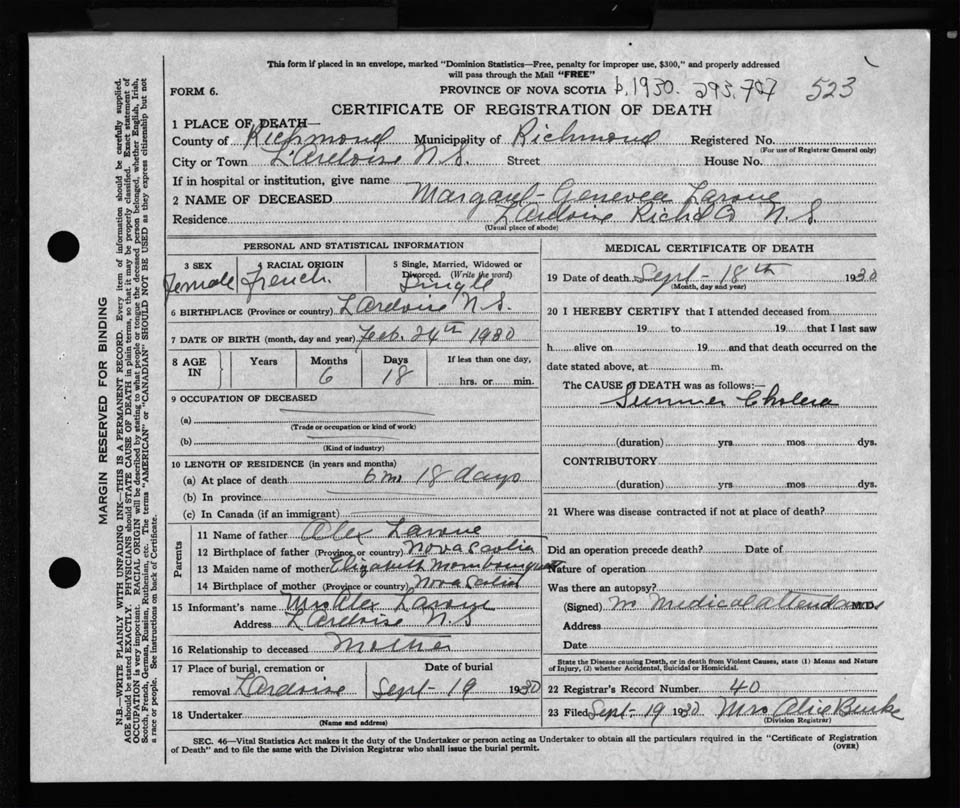 This form if placed in an envelope, marked "Dominion Statistics—Free, penalty for improper use, $300," and properly addressed
will pass through the Mail "FREE"
FORM 6. PROVINCE OF NOVA SCOTIA b. 1930. 293.707 523
CERTIFICATE OF REGISTRATION OF DEATH
1 PLACE OF DEATH—
County of Richmond Municipality of Richmond Registered No.
(For use of Registrar General only)
City or Town L'Ardoise N.S. Street House No.
If in hospital or institution, give name
2 NAME OF DECEASED Margaret Genevea Larrue
Residence L'Ardoise Richd Co N.S.
(Usual place of abode)
PERSONAL AND STATISTICAL INFORMATION
3 SEX 4 RACIAL ORIGIN 5 Single, Married, Widowed or
Divorced. (Write the word)
Female French Single
6 BIRTHPLACE (Province or country) L'Ardoise N.S.
7 DATE OF BIRTH (month, day and year) Feb. 24th 1930
8 AGE IN Years Months Days If less than one day,
6 18 hrs. or min.
9 OCCUPATION OF DECEASED
(a)
(Trade or occupation or kind of work)
(b)
(Kind of industry)
10 LENGTH OF RESIDENCE (in years and months)
(a) At place of death 6 m 18 days
(b) In province
(c) In Canada (if an immigrant)
Parents
11 Name of father Alex Larrue
12 Birthplace of father (Province or country) Nova Scotia
13 Maiden name of mother Elizabeth Mombourquette
14 Birthplace of mother (Province or country) Nova Scotia
15 Informant's name Mrs Alex Larrue
Address L'Ardoise N.S
16 Relationship to deceased Mother
17 Place of burial, cremation or Date of burial
removal L'ardoise Sept 19 1930
18 Undertaker
(Name and address)
MEDICAL CERTIFICATE OF DEATH
19 Date of death Sept 18th 1930
(Month, day and year)
20 I HEREBY CERTIFY that I attended deceased from
19 to 19 that I last saw
h alive on 19 and that death occurred on the
date stated above, at m.
The CAUSE OF DEATH was as follows:—
Summer Cholera
(duration) yrs mos dys.
CONTRIBUTORY
(duration) yrs mos dys.
21 Where was disease contracted if not at place of death?
Did an operation precede death? Date of
Nature of operation
Was there an autopsy?
(Signed) no Medical attendance M.D.
Address
Date
State the Disease causing Death, or in death from Violent Causes, state (1) Means and Nature
of Injury, (2) whether Accidental, Suicidal or Homicidal.
22 Registrar's Record Number 40
23 Filed Sept 19 1930 Mrs Alice Burke
(Division Registrar)
SEC. 46—Vital Statistics Act makes it the duty of the Undertaker or person acting as Undertaker to obtain all the particulars required in the "Certificate of Registration
of Death" and to file the same with the Division Registrar who shall issue the burial permit. (OVER)
MARGIN RESERVED FOR BINDING
N.B.—WRITE PLAINLY WITH UNFADING INK—THIS IS A PERMANENT RECORD. Every item of information should be carefully supplied.
AGE should be stated EXACTLY. PHYSICIANS should STATE CAUSE OF DEATH in plain terms, so that it may be properly classified. Exact statement of
OCCUPATION is very important. RACIAL ORIGIN will be described by stating to what people or tongue the deceased person belonged, whether English, Irish,
Scotch, French, German, Russian, Ruthenian, etc. The terms "AMERICAN" or "CANADIAN" SHOULD NOT BE USED as they express citizenship but not
a race or people. See instructions on back of Certificate.